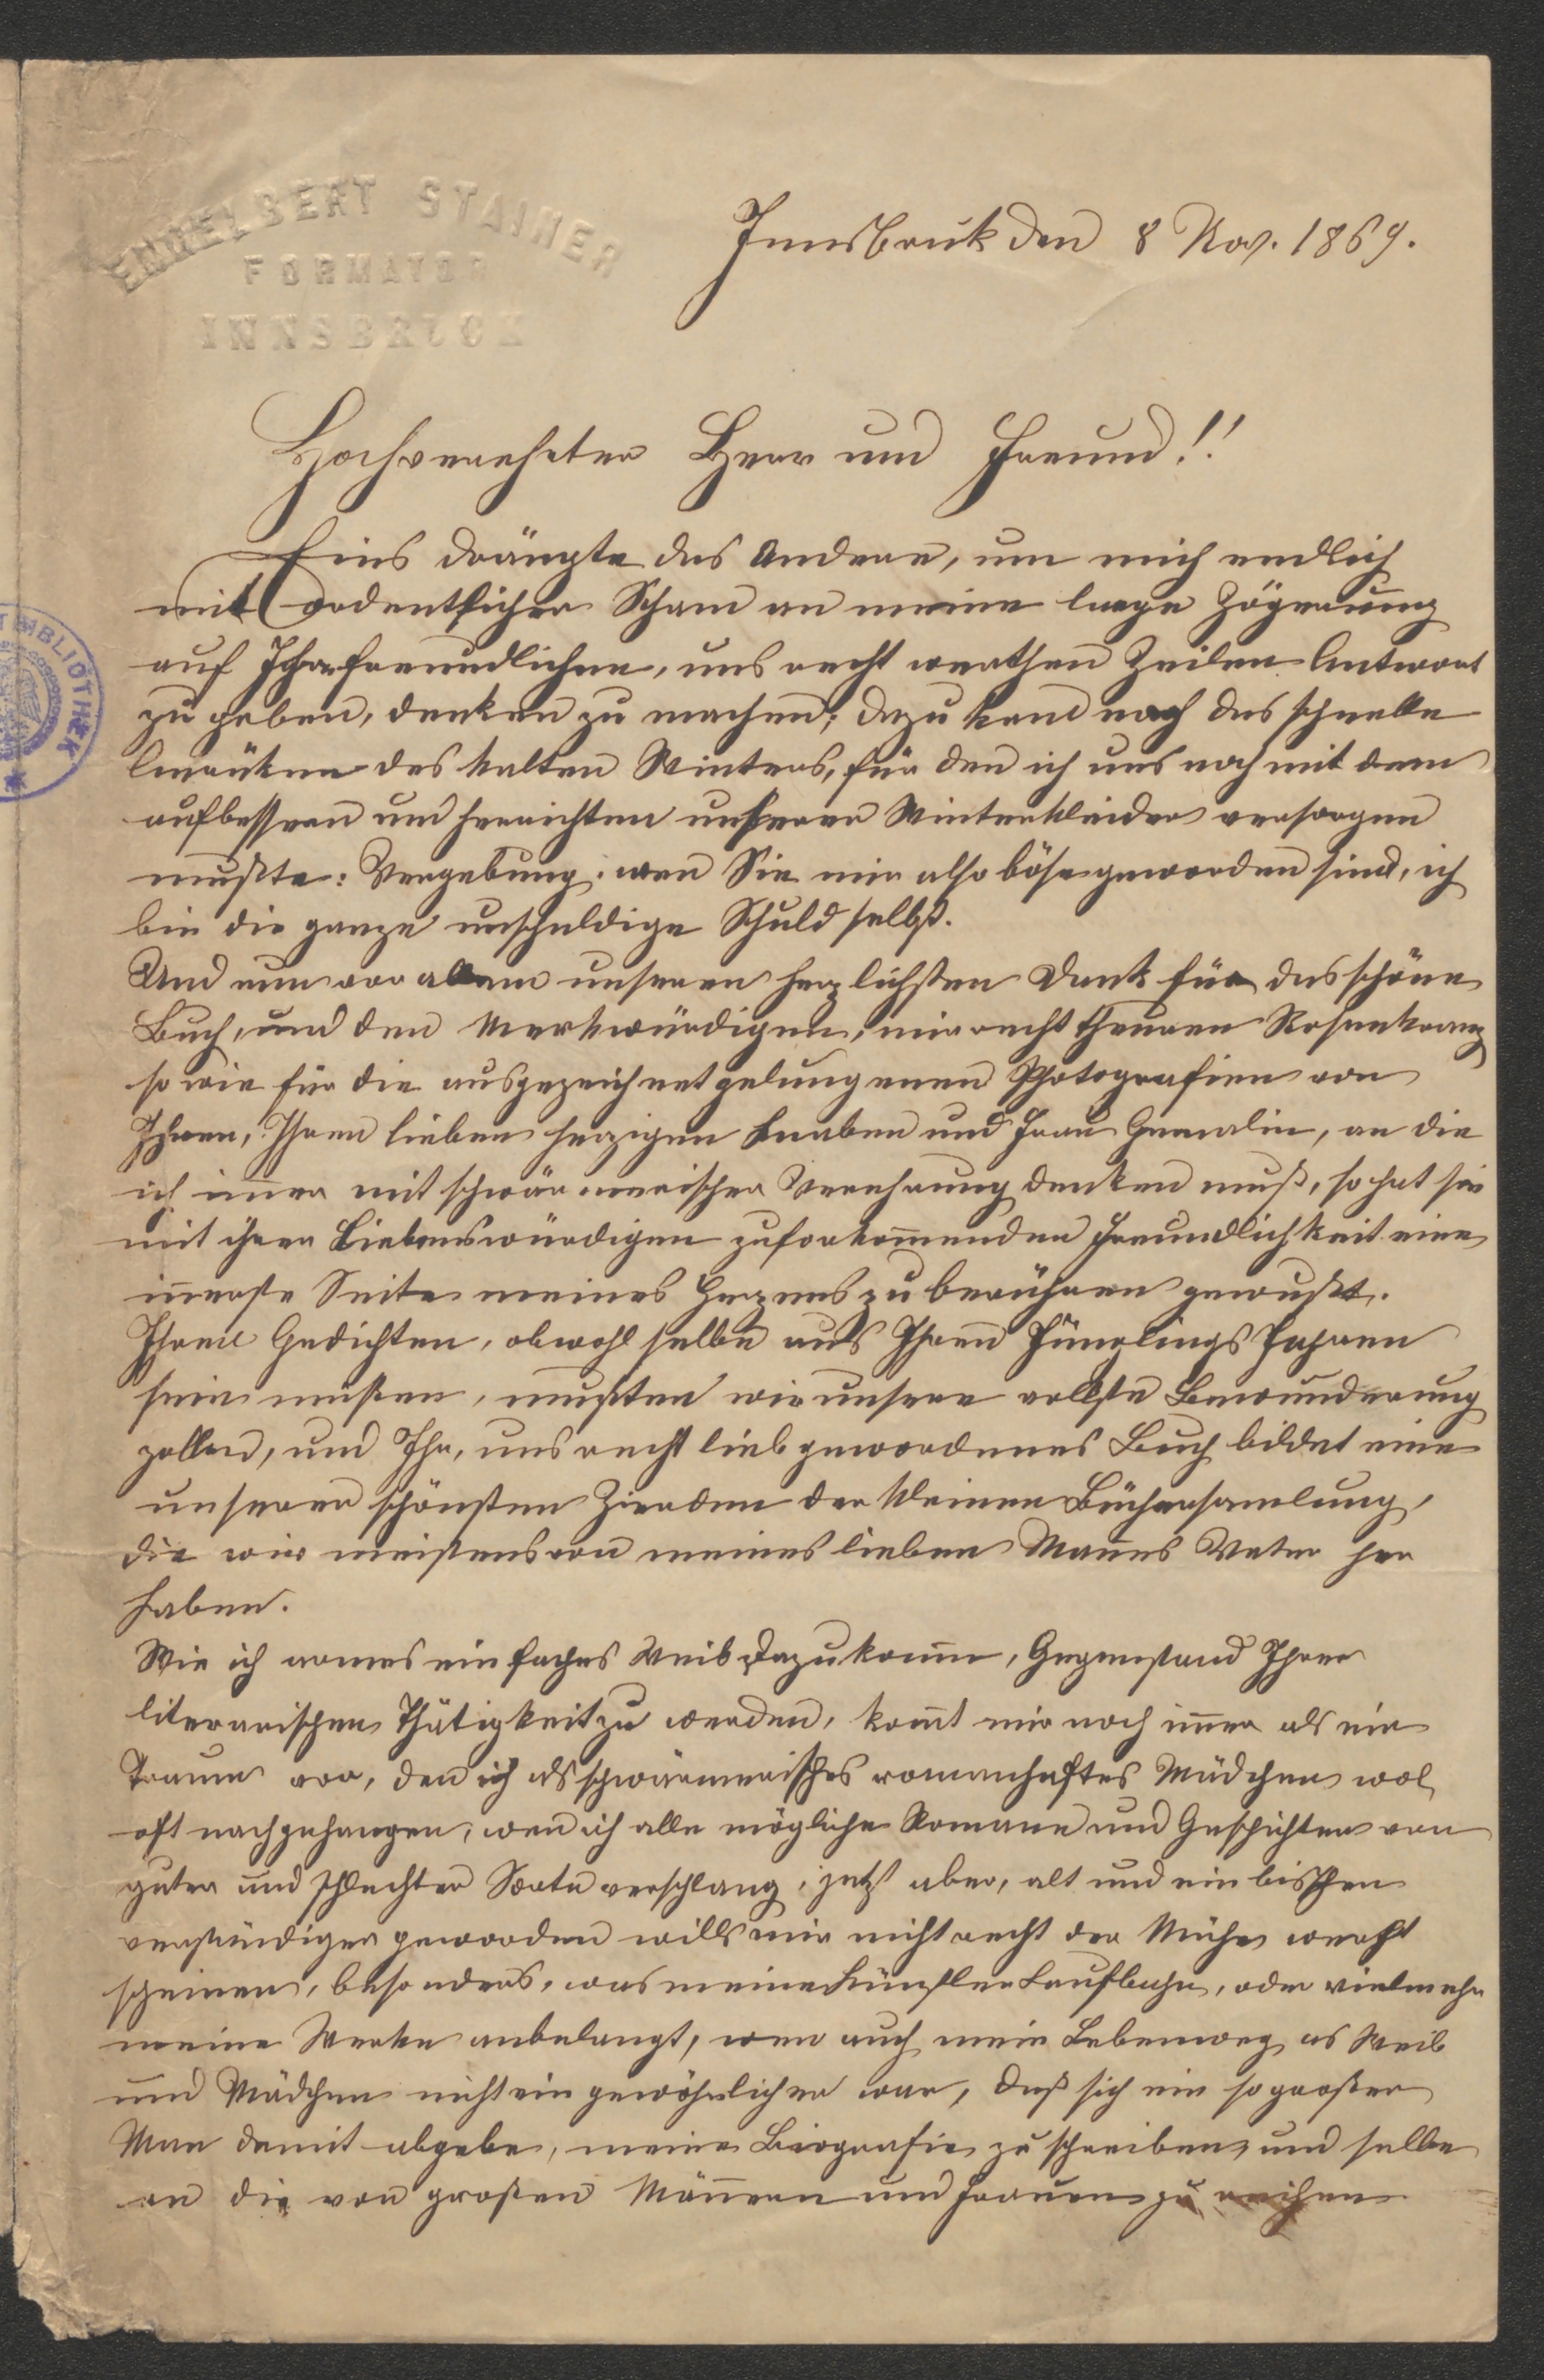 ENGELBERT STAINER
FORMATOR
INNSBRUCK
Innsbruk den 8 Nov. 1869.
BIBLIOTHEK
Hochverehrter Herr und Freund!!
Eins drängte das Andere, um mich endlich
mit ordentlicher Scham an meine lange Zögerung
auf Ihre freundlichen, uns recht werthen Zeilen Antwort
zu geben, denken zu machen; dazu kam noch das schnelle
der kalten Winters, für den ich uns noch mit dem
aufbessern und herrichten unserer Winterkleider versorgen
mußte: Vergebung. wen Sie mir also böse geworden sind, ich
bin die ganze unschuldige Schuld selbst.
Und nun vor allem unseren herzlichsten Dank für das schöne
Buch, und den Merkwürdigen, mir recht theuren Rosenkranz
so wie für die ausgezeichnet gelungenen Photografien von
Ihnen, Ihren lieben herzigen Knaben und Frau Gemalin, an die
ich imer mit schwärmerischer Verehrung denken muß, so hat sie
mit ihrer Liebenswürdigen zuforkomenden Freundlichkeit eine
inerste Seite meines Herzens zu berühren gewußt.
Ihren Gedichten, obwohl selbe aus Ihren Jünglings Jahren
sein müßen, mußten wir unsere vollste Bewunderung
zollen, und Ihr, uns recht lieb gewordenes Buch bildet eine
unserer schönsten Zierden der kleinen Büchersamlung,
die wir meistens von meines lieben Manes Vater her
haben.
Wie ich armes einfaches Weib dazu kome, Gegenstand Ihrer
literarischen Thätigkeit zu werden, komt mir noch imer als ein
Traum vor, den ich als schwärmerisches romanhaftes Mädchen wol
oft nachgehangen, wen ich alle mögliche Romane und Geschichten von
guter und schlechter Sorte verschlang, jetzt aber, alt und ein bisschen
verständiger geworden wills mir nicht recht der Mühe werth
scheinen, besonders, was meine Künstler Laufbahn, oder vielmehr
meine Werke anbelangt, wen auch mein Lebenweg als Weib
und Mädchen nicht ein gewöhnlicher war, daß sich ein so großer
Man damit abgebe, meine Biografie zu schreiben, und selbe
an die von großen Mänern und Frauen zu reihen